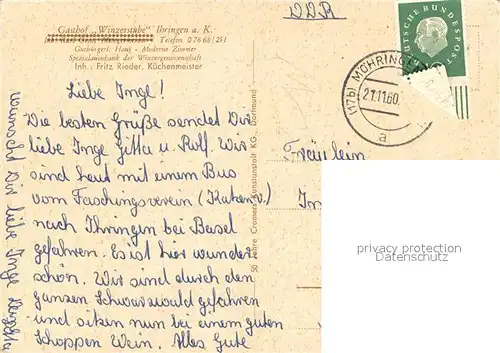 DDR
Gasthof „Winzerstube" Ihringen a. K.
Telefon 07668/251
Gutbürgerl. Haus - Moderne Zimmer
Spezialausschank der Winzergenossenschaft
Inh.: Fritz Rieder, Küchenmeister
Liebe Inge!
Die besten Grüße sendet Dir
liebe Inge Gitta u. Rolf. Wir
sind heut mit einem Bus
vom Faschingsverein (Katzenv.)
nach Ihringen bei Basel
gefahren. Es ist hier wunder
schön. Wir sind durch den
ganzen Schwarzwald gefahren
und sitzen nun bei einem guten
Schoppen Wein. Alles Gute
wünscht Dir liebe Inge
50 Jahre Cramers Kunstanstalt KG., Dortmund
DEUTSCHE BUNDESPOST
(17b) MÖHRINGEN
21.11.60.
a
Fräulein
In
privacy protection
Datenschutz